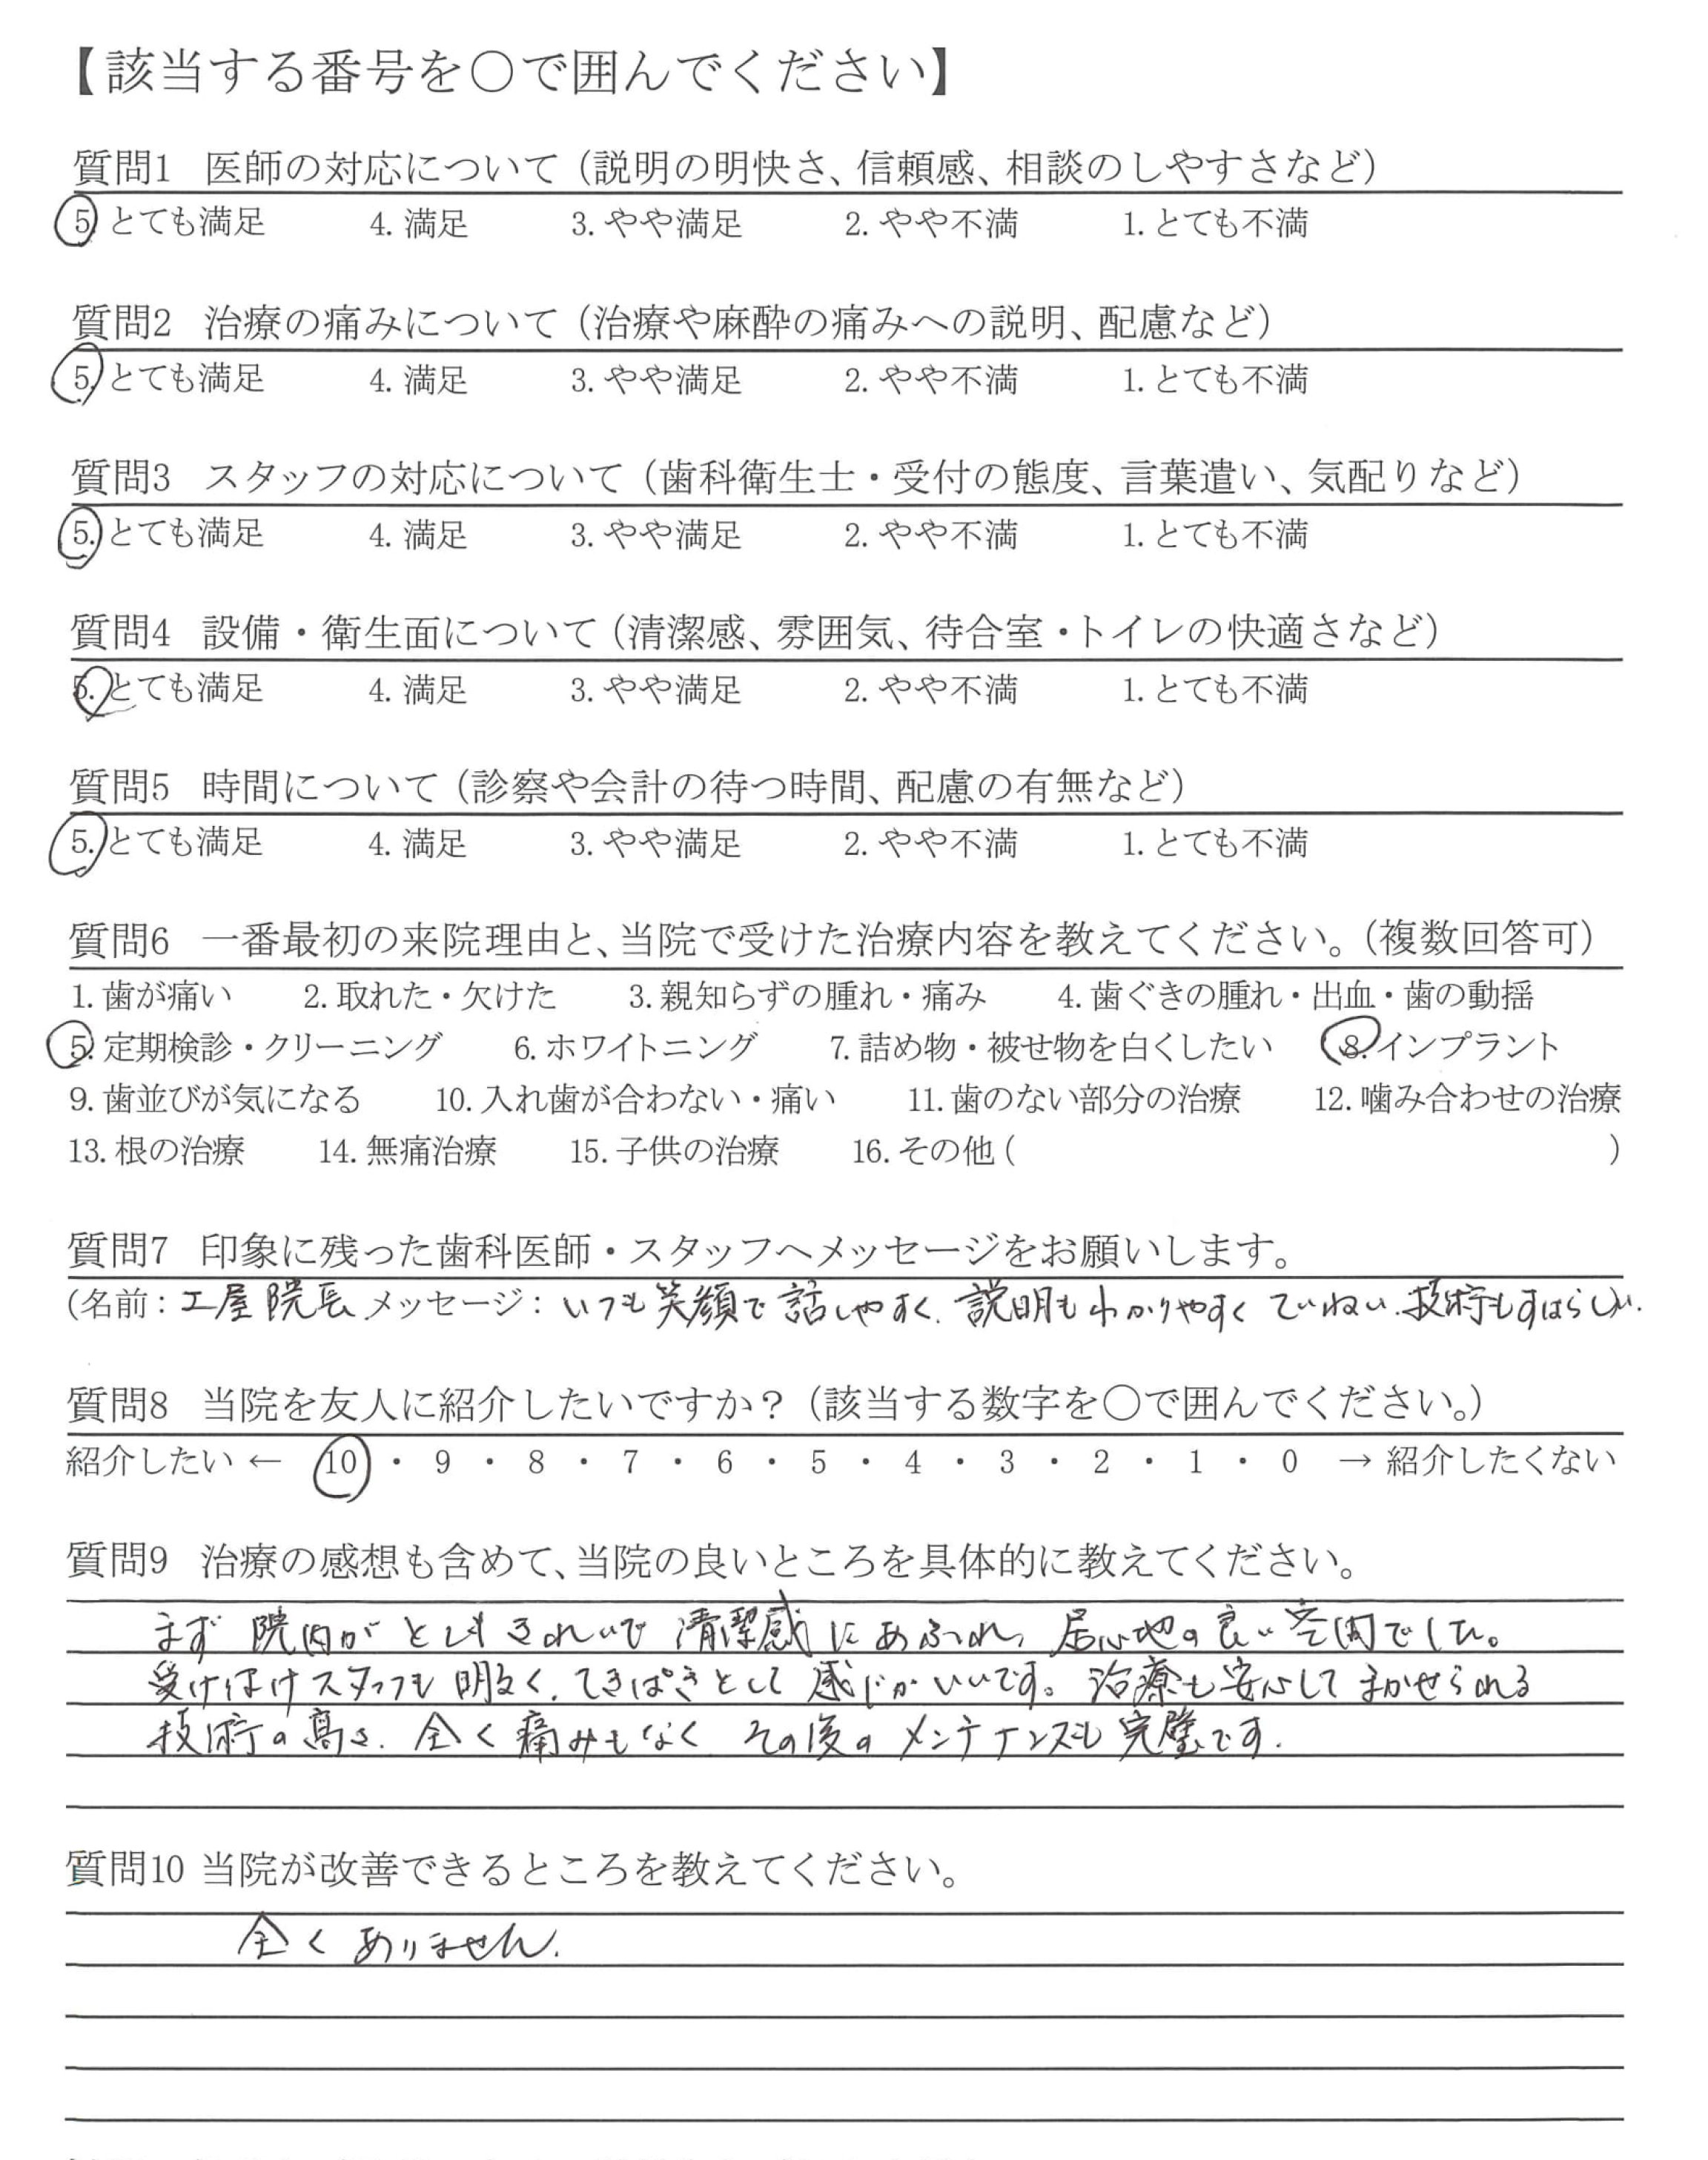 【該当する番号を○で囲んでください】
質問1 医師の対応について（説明の明快さ、信頼感、相談のしやすさなど）
5. とても満足 4. 満足 3. やや満足 2. やや不満 1. とても不満
質問2 治療の痛みについて（治療や麻酔の痛みへの説明、配慮など）
5. とても満足 4. 満足 3. やや満足 2. やや不満 1. とても不満
質問3 スタッフの対応について（歯科衛生士・受付の態度、言葉遣い、気配りなど）
5. とても満足 4. 満足 3. やや満足 2. やや不満 1. とても不満
質問4 設備・衛生面について（清潔感、雰囲気、待合室・トイレの快適さなど）
5. とても満足 4. 満足 3. やや満足 2. やや不満 1. とても不満
質問5 時間について（診察や会計の待つ時間、配慮の有無など）
5. とても満足 4. 満足 3. やや満足 2. やや不満 1. とても不満
質問6 一番最初の来院理由と、当院で受けた治療内容を教えてください。（複数回答可）
1. 歯が痛い 2. 取れた・欠けた 3. 親知らずの腫れ・痛み 4. 歯ぐきの腫れ・出血・歯の動揺
5. 定期検診・クリーニング 6. ホワイトニング 7. 詰め物・被せ物を白くしたい 8. インプラント
9. 歯並びが気になる 10. 入れ歯が合わない・痛い 11. 歯のない部分の治療 12. 噛み合わせの治療
13. 根の治療 14. 無痛治療 15. 子供の治療 16. その他 ( )
質問7 印象に残った歯科医師・スタッフへメッセージをお願いします。
(名前： 工屋 院長 メッセージ： いつも笑顔で話しやすく. 説明もわかりやすく ていねい. 技術もすばらしい.
質問8 当院を友人に紹介したいですか？（該当する数字を○で囲んでください。）
紹介したい ← 10 ・ 9 ・ 8 ・ 7 ・ 6 ・ 5 ・ 4 ・ 3 ・ 2 ・ 1 ・ 0 → 紹介したくない
質問9 治療の感想も含めて、当院の良いところを具体的に教えてください。
まず 院内が とても きれいで 清潔感 に あふれ、居心地の良い空間でした。
受け付け スタッフも 明るく、てきぱきとして 感じが いいです。治療も安心して まかせられる
技術の高さ. 全く痛みもなく その後の メンテナンスも 完璧です.
質問10 当院が改善できるところを教えてください。
全く ありません.